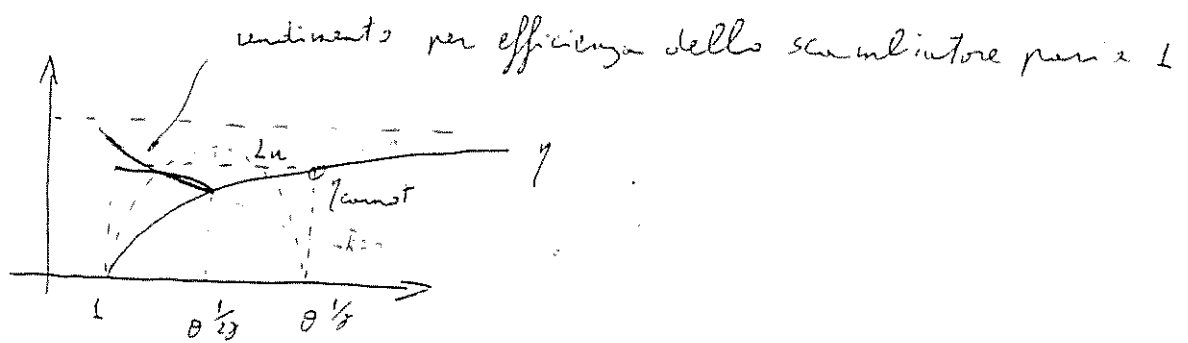 rendimento per efficienza dello scambiatore pari a 1
Lu
η
ηcarnot
1 θ^1/2γ θ^1/γ